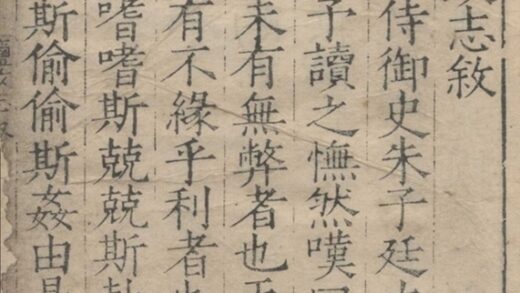 志敘
侍御史朱子廷
予讀之憮然嘆
未有無弊者也
有不緣乎利者
嗜嗜斯兢兢斯
斯偷偷斯姦由